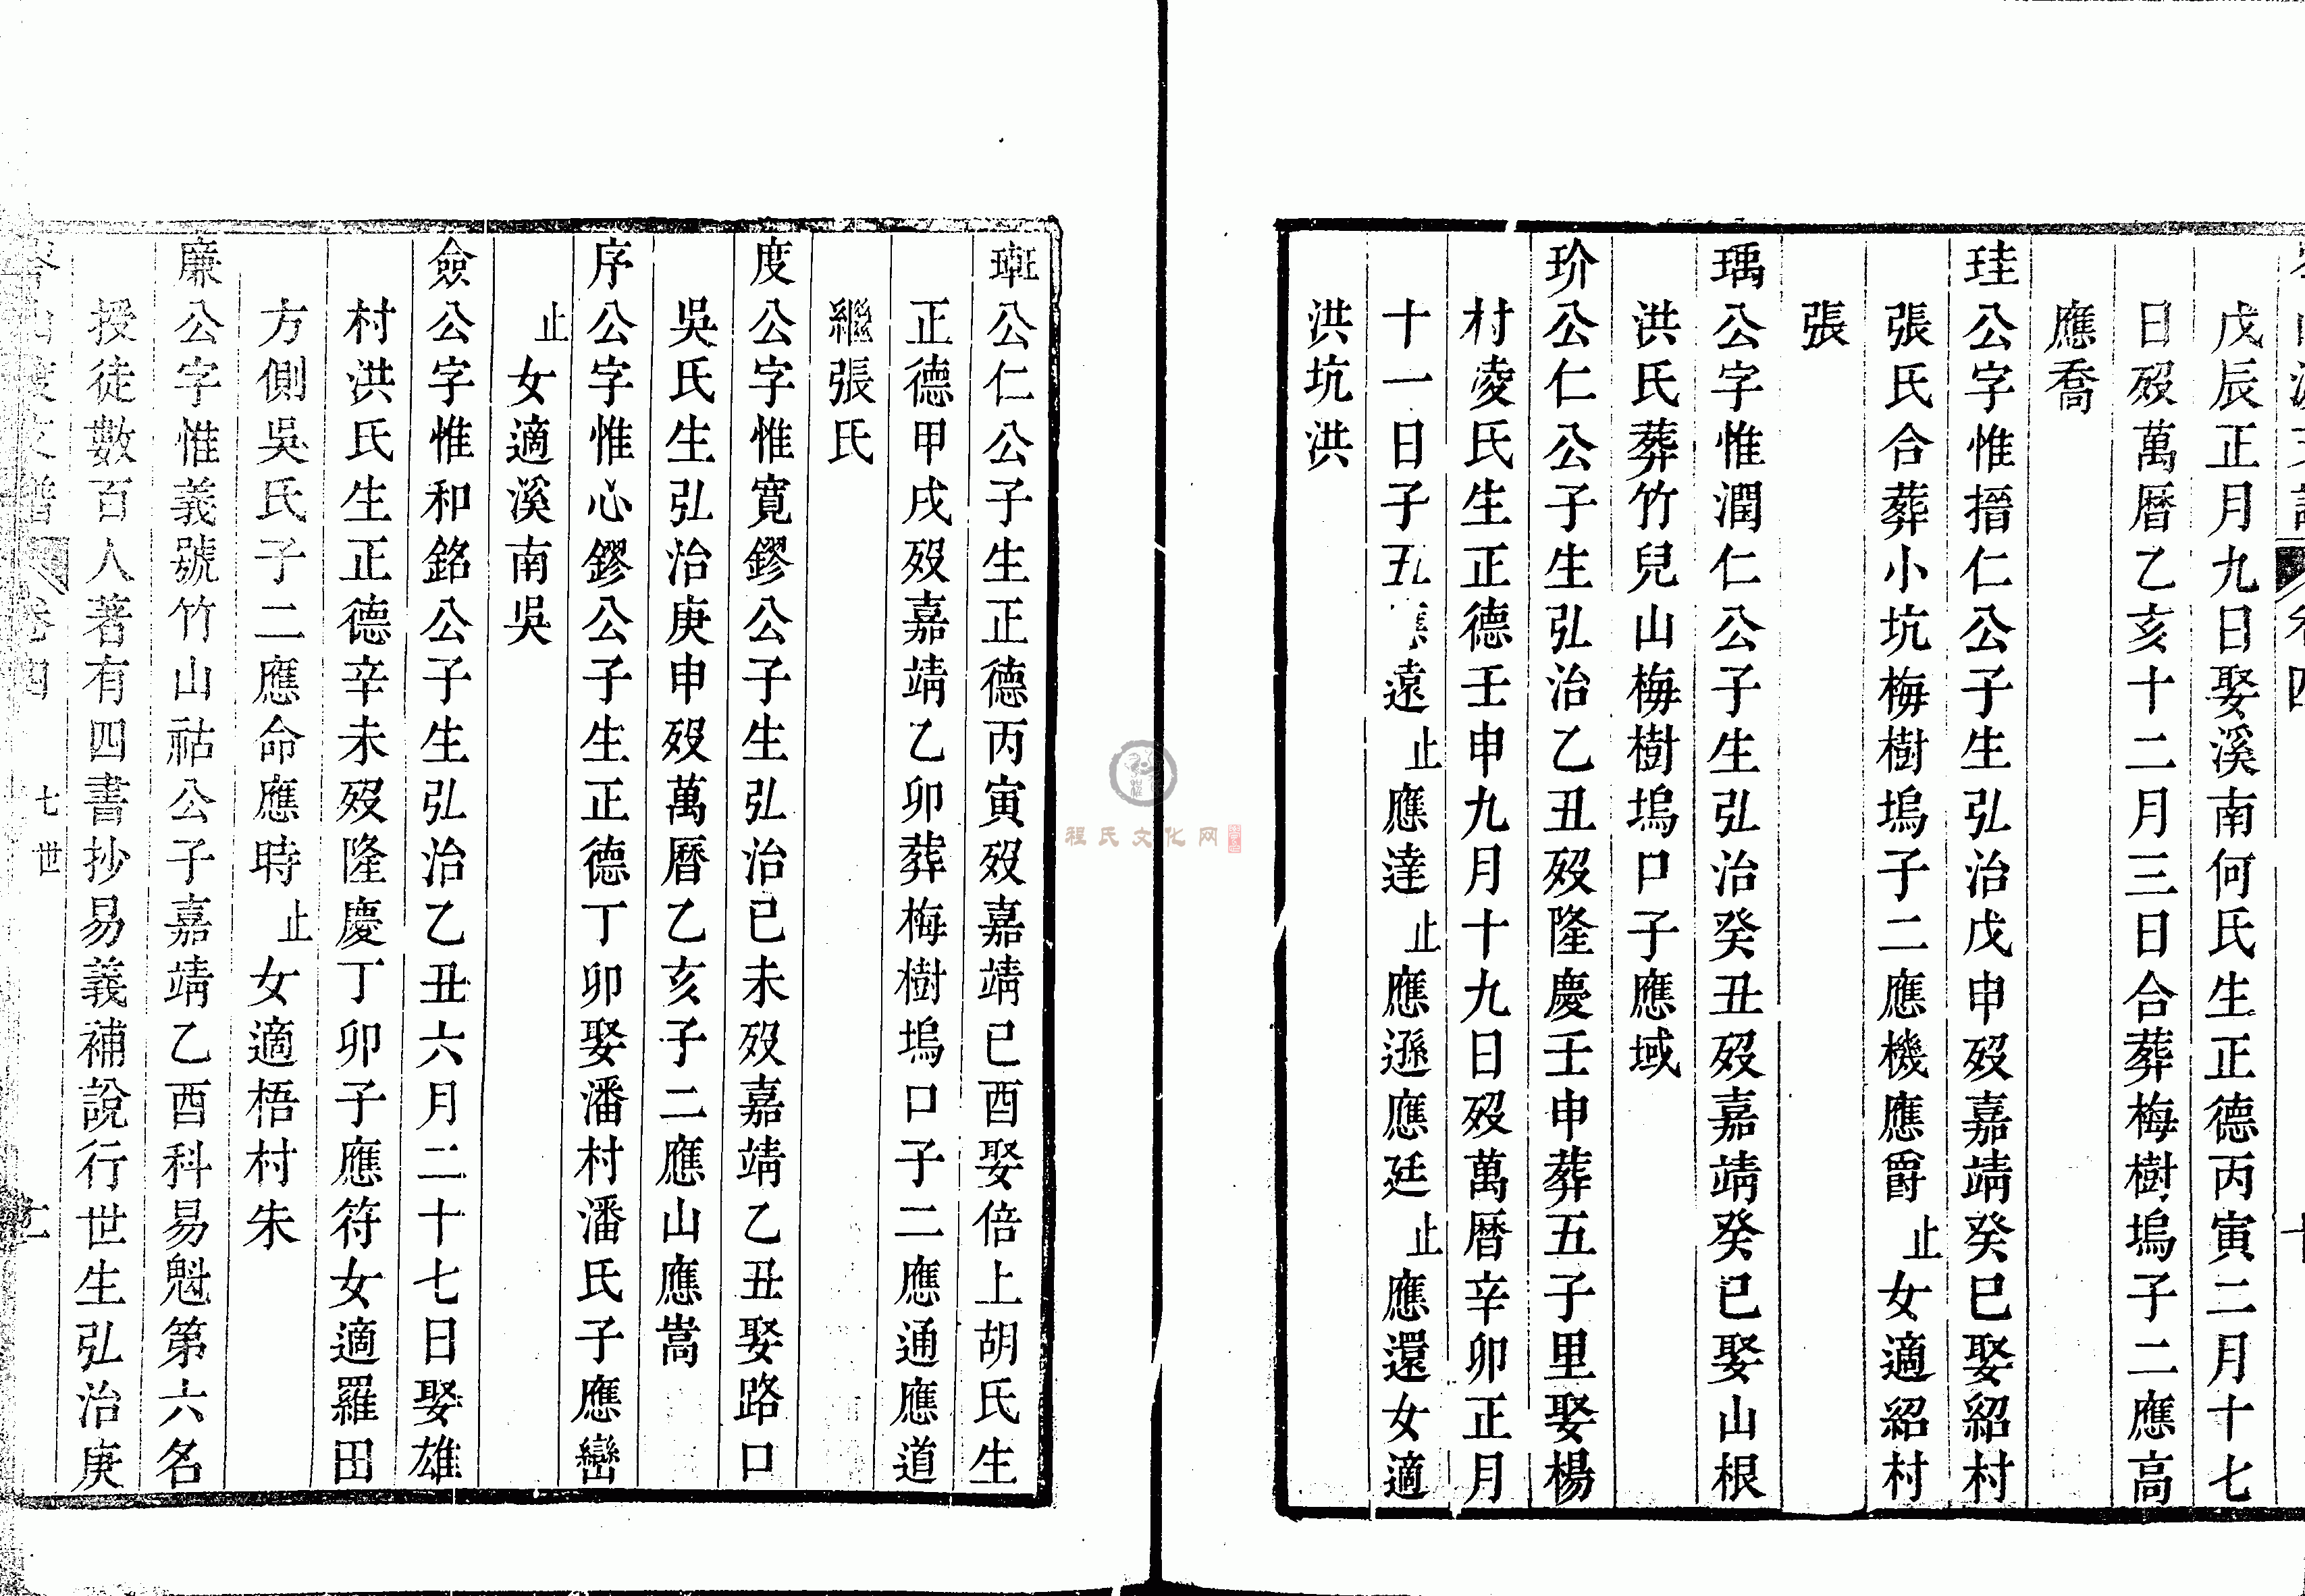 戊辰正月九日娶溪南何氏生正德丙寅二月十七
日歿萬曆乙亥十二月三日合葬梅樹塢子二應高
應喬
珪公字惟搢仁公子生弘治戊申歿嘉靖癸巳娶紹村
張氏合葬小坑梅樹塢子二應機應爵止女適紹村
張
瑀公字惟潤仁公子生弘治癸丑歿嘉靖癸巳娶山根
洪氏葬竹兒山梅樹塢口子應域
玠公仁公子生弘治乙丑歿隆慶壬申葬五子里娶楊
村凌氏生正德壬申九月十九日歿萬曆辛卯正月
十一日子五應遠止應達止應遜應廷止應還女適
洪坑洪
公仁公子生正德丙寅歿嘉靖已酉娶倍上胡氏生
正德甲戌歿嘉靖乙卯葬梅樹塢口子二應通應道
繼張氏
度公字惟寬鏐公子生弘治已未歿嘉靖乙丑娶路口
吳氏生弘治庚申歿萬曆乙亥子二應山應嵩
序公字惟心鏐公子生正德丁卯娶潘村潘氏子應巒
止女適溪南吳
僉公字惟和銘公子生弘治乙丑六月二十七日娶雄
村洪氏生正德辛未歿隆慶丁卯子應符女適羅田
方側吳氏子二應命應時止女適梧村朱
廉公字惟義號竹山祜公子嘉靖乙酉科易魁第六名
授徒數百人著有四書抄易義補說行世生弘治庚
卷四 七世
程氏文化网